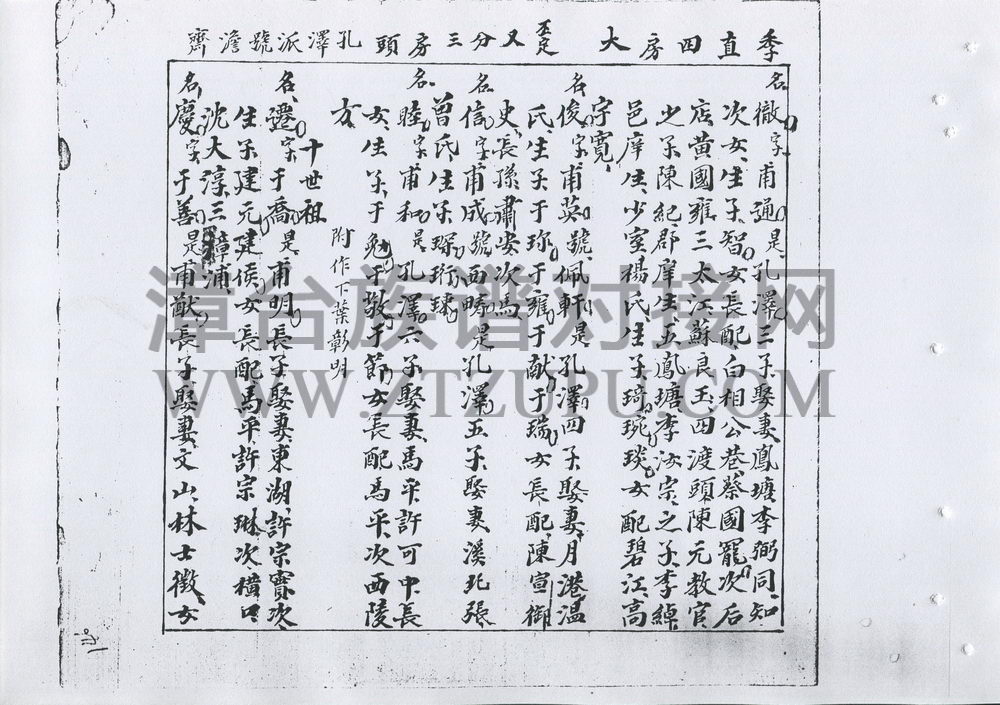 季直四房大 又分三房頭孔澤派號澹齊
名徹字甫通是孔澤三子娶妻鳳塘李弼同知
次女生子智女長配白相公巷蔡國寵次后
店黃國雍三太江蘇良玉四渡頭陳元教官
之子陳紀郡庠生五鳳塘李汝宗之子李綽
邑庠生少室楊氏生子琦琬琰女配碧江高
字寬
名俊字甫英號佩軒是孔澤四子娶妻月港溫
氏生子于珎于雍于献于瑞女長配陳宣御
史長孫肅安次馬
名信字甫成號西疇是孔澤五子娶妻溪北張
曾氏生子琛珩球
名睦字甫和是孔澤六子娶妻馬平許可中長
女生子于勉于敬于節女長配馬平次西陵
方
附作下葉彰明
十世祖
名遷字于喬是甫明長子娶妻東湖許宗寶次
生子建元建侯女長配馬平許宗琳次橫口
沈大淳三漳浦
名慶字于善是甫猷長子娶妻文山林士徵女
漳台族谱对接网
WWW.ZTZUPU.COM